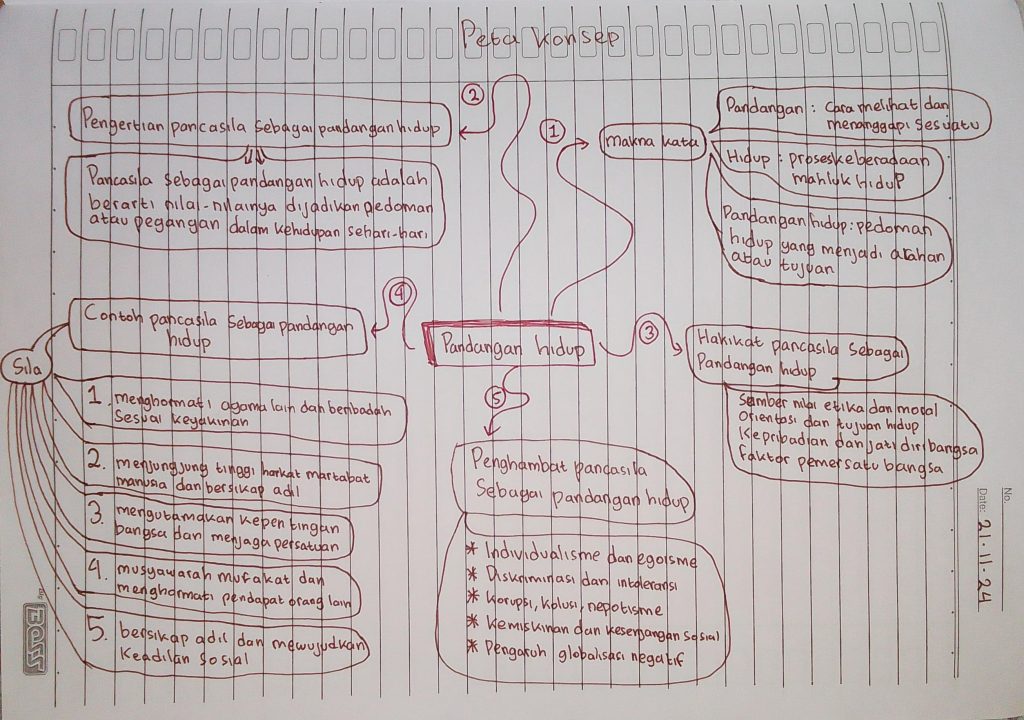 Peta Konsep
Pandangan hidup
1
makna kata
Pandangan : Cara melihat dan
menanggapi sesuatu
Hidup : proses keberadaan
mahluk Hidup
Pandangan hidup : pedoman
hidup yang menjadi arahan
atau tujuan
2
Pengertian pancasila Sebagai pandangan hidup
Pancasila Sebagai pandangan hidup adalah
berarti nilai-nilainya dijadikan pedoman
atau pegangan dalam kehidupan sehari-hari
3
Hakikat pancasila Sebagai
Pandangan hidup
Sumber nilai etika dan moral
Orientasi dan tujuan hidup
Kepribadian dan jati diri bangsa
faktor pemersatu bangsa
4
Contoh pancasila Sebagai pandangan
hidup
Sila
1. menghormati agama lain dan beribadah
Sesuai keyakinan
2. menjungjung tinggi harkat martabat
manusia dan bersikap adil
3. mengutamakan kepentingan
bangsa dan menjaga persatuan
4. musyawarah mufakat dan
menghormati pendapat orang lain
5. bersikap adil dan mewujudkan
Keadilan sosial
5
Penghambat pancasila
Sebagai pandangan hidup
* Individualisme dan egoisme
* Diskriminasi dan intoleransi
* Korupsi, kolusi, nepotisme
* Kemiskinan dan kesenjangan sosial
* Pengaruh globalisasi negatif
No.
Date: 21.11.24